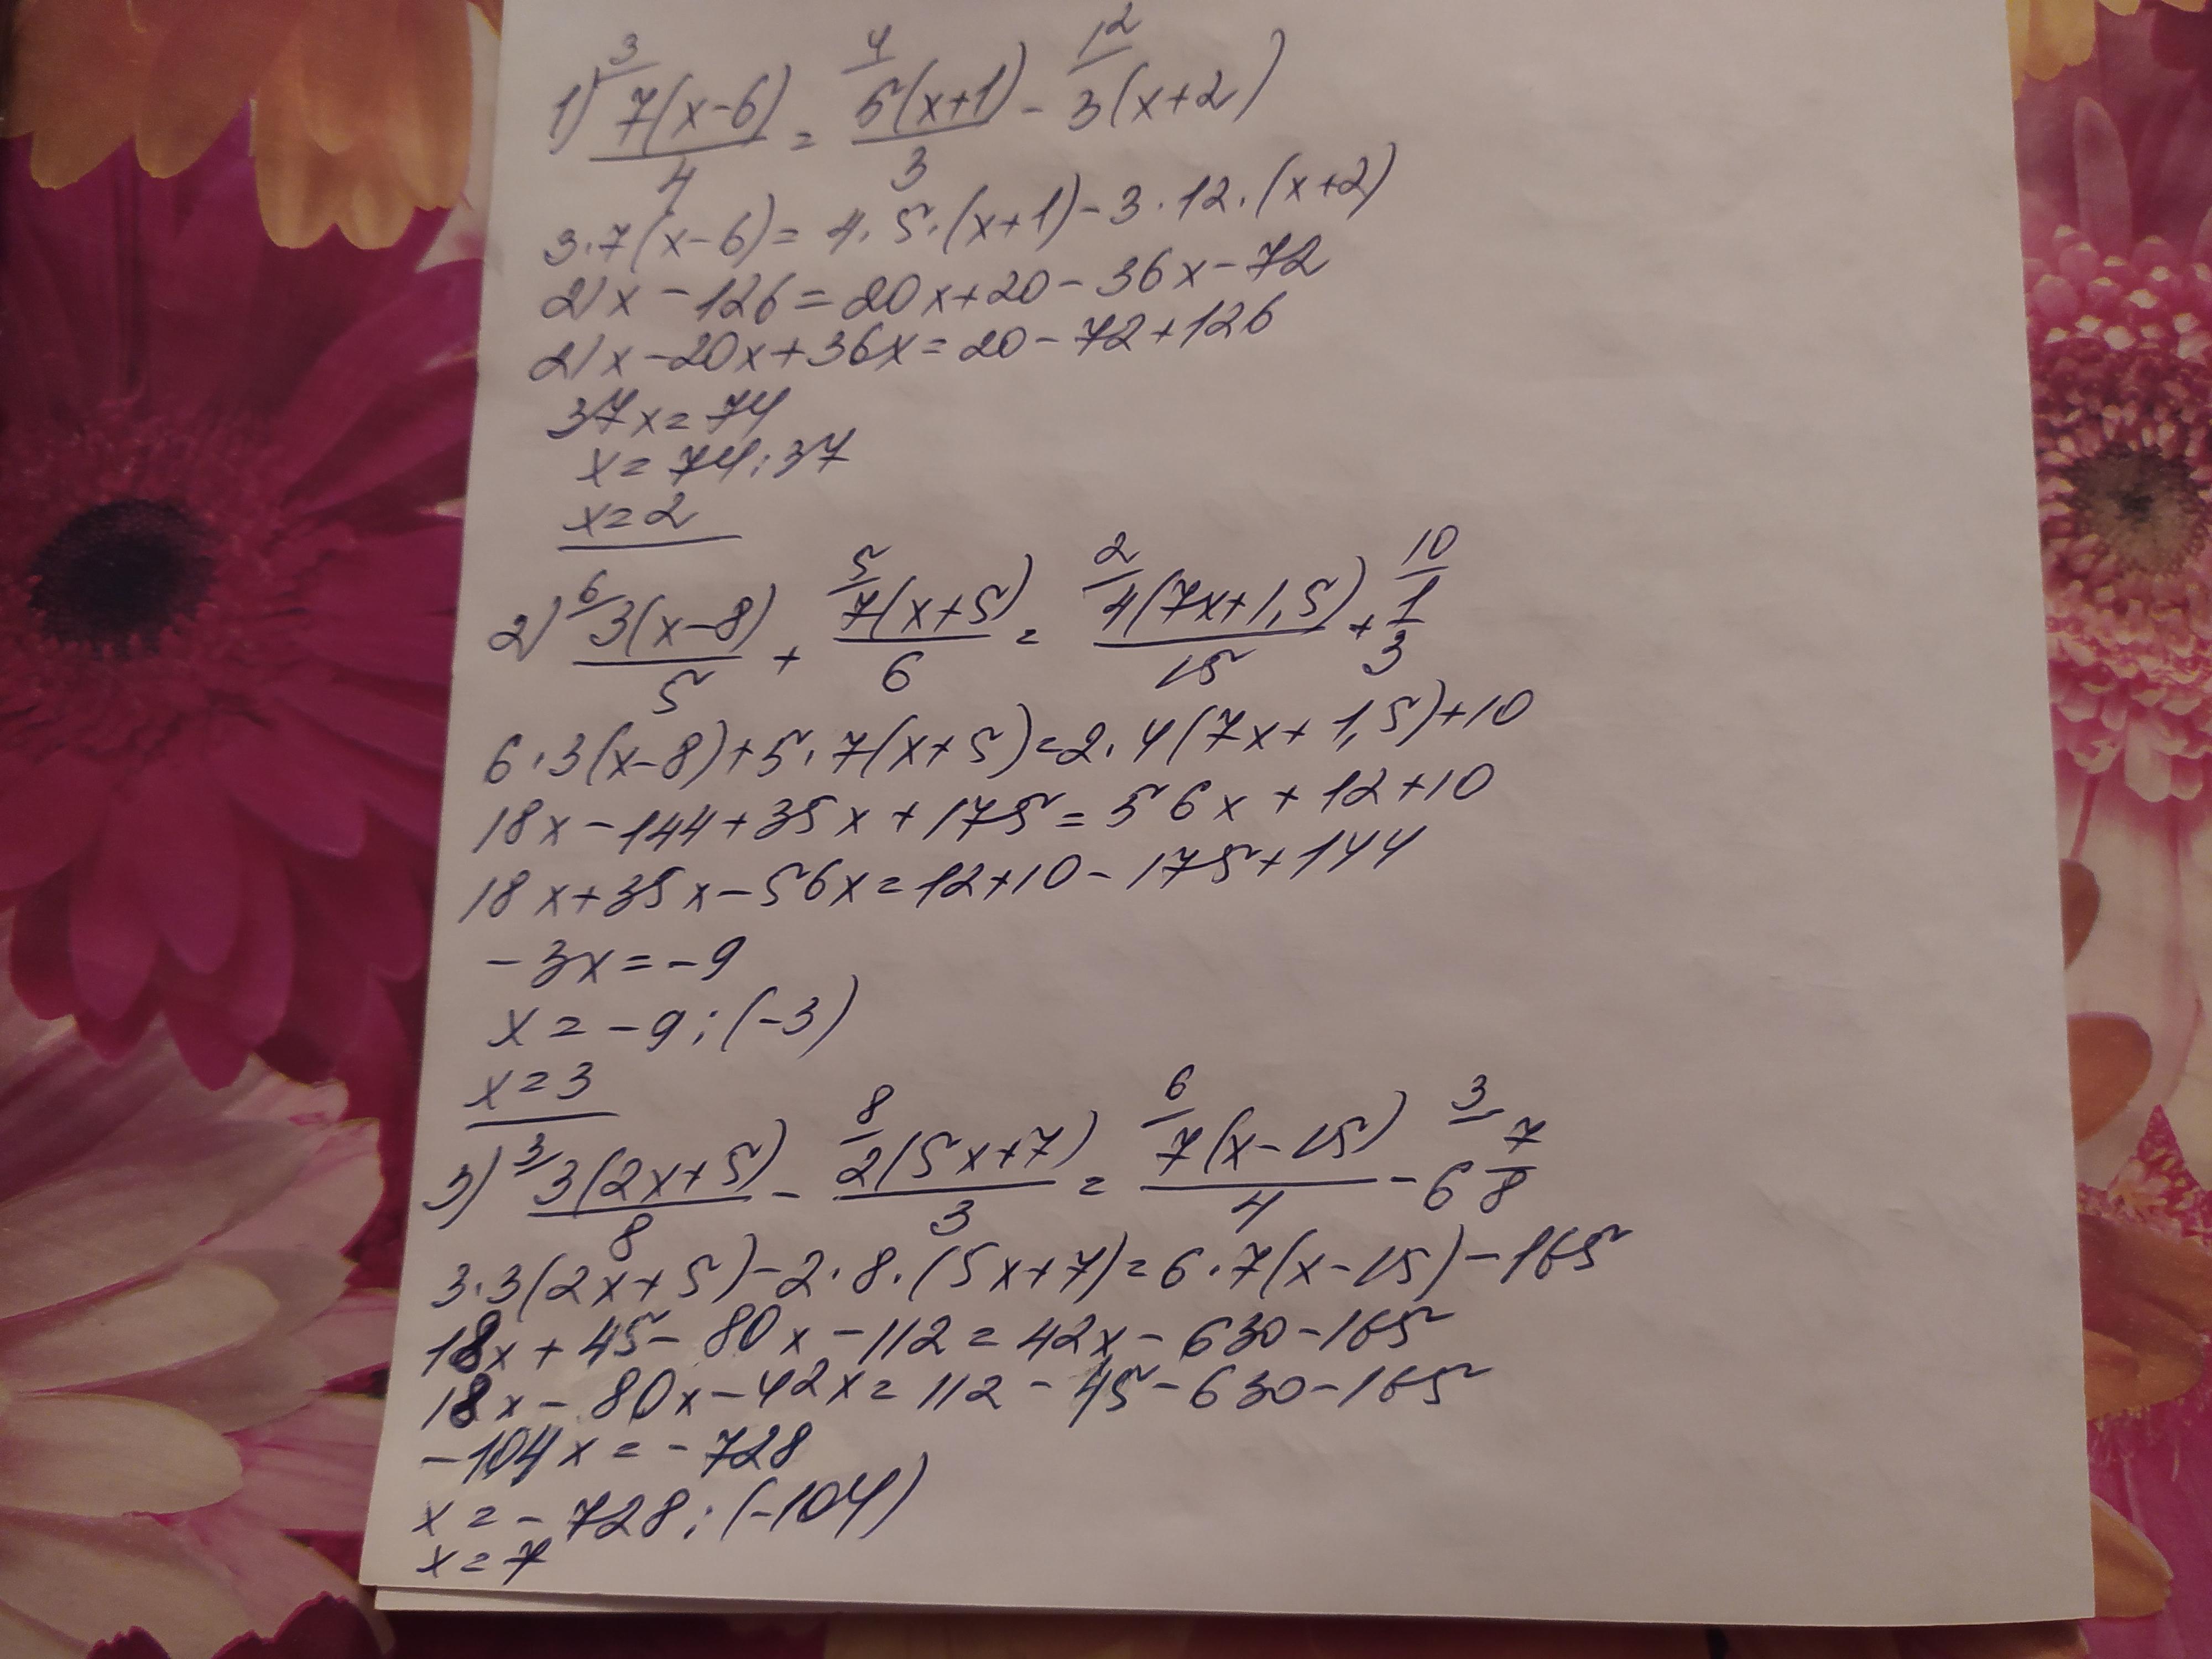 3 4 12
1) 7(x-6)/4 = 5(x+1)/3 - 3(x+2)
3·7(x-6)=4·5·(x+1)-3·12·(x+2)
21x-126=20x+20-36x-72
21x-20x+36x=20-72+126
37x=74
x=74:37
x=2
6 5 2 10
2) 3(x-8)/5 + 7(x+5)/6 = 4(7x+1,5)/15 + 1/3
6·3(x-8)+5·7(x+5)=2·4(7x+1,5)+10
18x-144+35x+175=56x+12+10
18x+35x-56x=12+10-175+144
-3x=-9
x=-9:(-3)
x=3
3 8 6 3
3) 3(2x+5)/8 - 2(5x+7)/3 = 7(x-15)/4 - 6 7/8
3·3(2x+5)-2·8·(5x+7)=6·7(x-15)-165
18x+45-80x-112=42x-630-165
18x-80x-42x=112-45-630-165
-104x=-728
x=-728:(-104)
x=7